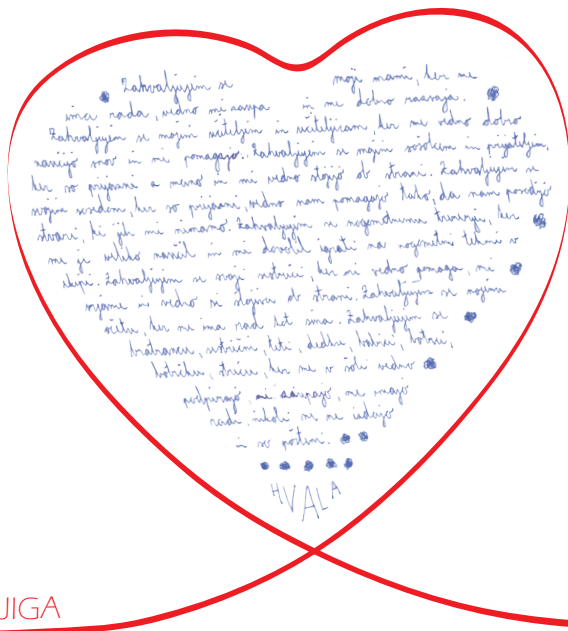 Zahvaljujem se moji mami, ker me
ima rada, vedno mi zaupa in me dobro razvaja.
Zahvaljujem se mojim učiteljem in učiteljicam, ker me vedno dobro
naučijo snov in mi pomagajo. Zahvaljujem se mojim sošolcem in prijateljem,
ker so prijazni z menoj in mi vedno stojijo ob strani. Zahvaljujem se
mojim sosedom, ker so prijazni, vedno nam pomagajo tako, da nam posodijo
stvari, ki jih mi nimamo. Zahvaljujem se nogometnemu trenerju, ker
me je veliko naučil in mi dovolil igrati na nogometni tekmi v
ekipi. Zahvaljujem se svoji sestrici, ker mi vedno pomaga, me
in vedno mi ob strani. Zahvaljujem se mojemu
očetu, ker me ima rad kot sina. Zahvaljujem se
bratrancu, sestrični, teti, dedku, babici, botri,
botrčku, stricu, ker me v šoli vedno
podpirajo, mi zaupajo, me imajo
radi, nikoli me ne
in so pošteni.
HVALA
JIGA